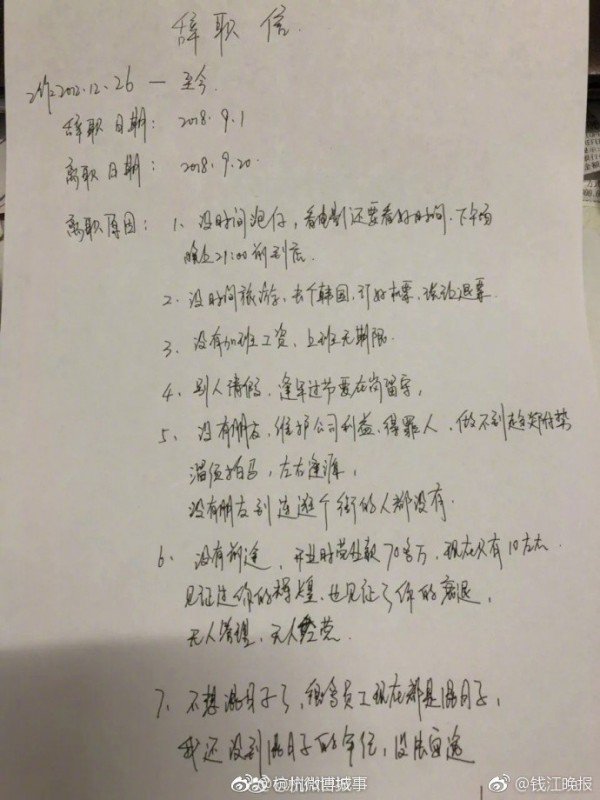 辞职信
工作2012.12.26 — 至今
辞职日期: 2018.9.1
离职日期: 2018.9.20
离职原因: 1、没时间泡仔,看电影还要看好时间.下午场
晚上21:00前到底.
2、没时间旅游,去个韩国,订好机票,被迫退票
3、没有加班工资、上班无期限.
4、别人请假,逢年过节要在岗留守,
5、没有朋友,维护公司利益、得罪人,做不到趋炎附势
溜须拍马,左右逢源,
没有朋友到连逛个街的人都没有.
6、没有前途,开业时营业额70多万,现在只有10左右.
见证过你的辉煌、也见证了你的衰退,
无人管理,无人经营.
7、不想混日子了,很多员工现在都是混日子,
我还没到混日子的年纪,
@杭州微博城事
@钱江晚报